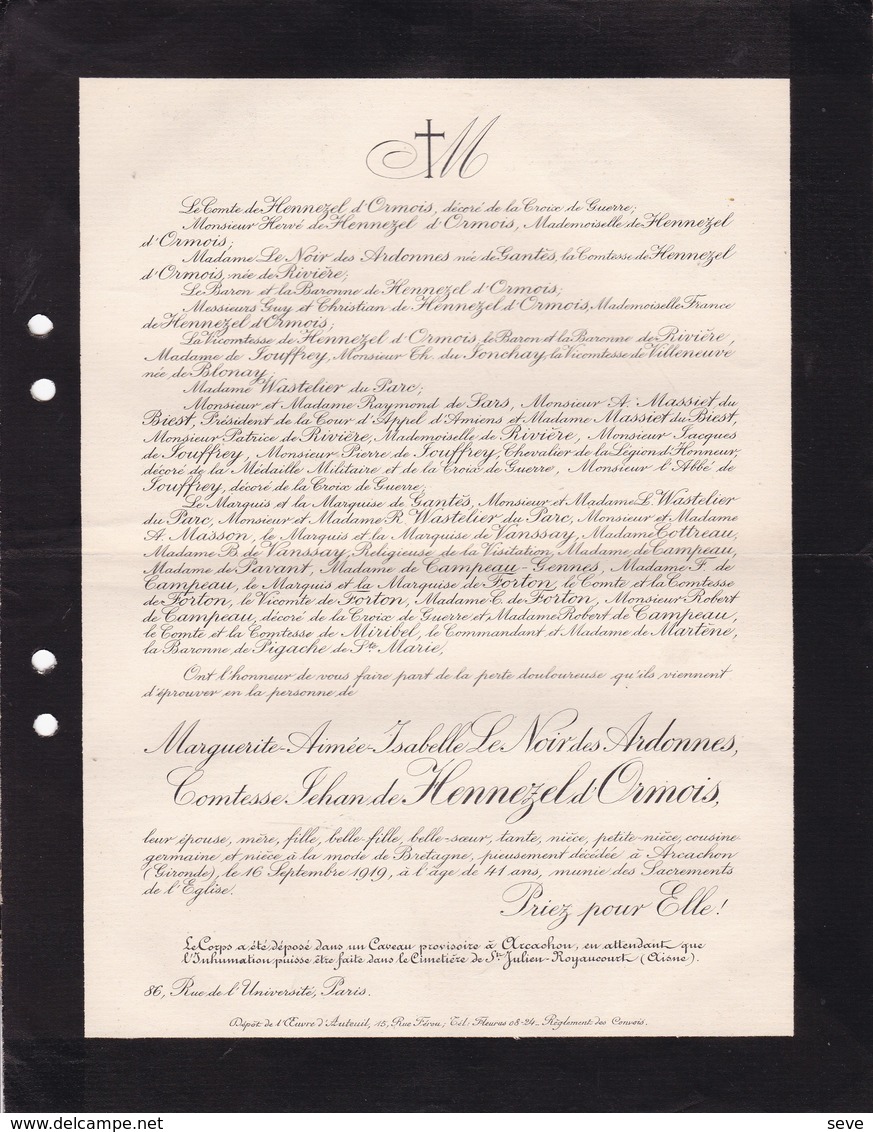 M
Le Comte de Hennezel d'Ormois, décoré de la Croix de Guerre;
Monsieur Hervé de Hennezel d'Ormois, Mademoiselle de Hennezel
d'Ormois;
Madame Le Noir des Ardonnes née de Gantès, la Comtesse de Hennezel
d'Ormois, née de Rivière;
Le Baron et la Baronne de Hennezel d'Ormois;
Messieurs Guy et Christian de Hennezel d'Ormois, Mademoiselle France
de Hennezel d'Ormois;
La Vicomtesse de Hennezel d'Ormois, le Baron et la Baronne de Rivière,
Madame de Jouffrey, Monsieur Th. du Jonchay, la Vicomtesse de Villeneuve
née de Blonay;
Madame Wastelier du Parc;
Monsieur et Madame Raymond de Sars, Monsieur A. Massiet du
Biest, Président de la Cour d'Appel d'Amiens et Madame Massiet du Biest,
Monsieur Patrice de Rivière, Mademoiselle de Rivière, Monsieur Jacques
de Jouffrey, Monsieur Pierre de Jouffrey, Chevalier de la Légion d'Honneur,
décoré de la Médaille Militaire et de la Croix de Guerre, Monsieur l'Abbé de
Jouffrey, décoré de la Croix de Guerre;
Le Marquis et la Marquise de Gantès, Monsieur et Madame L. Wastelier
du Parc, Monsieur et Madame R. Wastelier du Parc, Monsieur et Madame
A. Masson, le Marquis et la Marquise de Vanssay, Madame Cottreau,
Madame B. de Vanssay, Religieuse de la Visitation, Madame de Campeau,
Madame de Pavant, Madame de Campeau-Gennes, Madame F. de
Campeau, le Marquis et la Marquise de Forton, le Comte et la Comtesse
de Forton, le Vicomte de Forton, Madame C. de Forton, Monsieur Robert
de Campeau, décoré de la Croix de Guerre et Madame Robert de Campeau,
le Comte et la Comtesse de Miribel, le Commandant et Madame de Martène,
la Baronne de Pigache de Ste Marie,
Ont l'honneur de vous faire part de la perte douloureuse qu'ils viennent
d'éprouver en la personne de
Marguerite-Aimée-Isabelle Le Noir des Ardonnes,
Comtesse Jehan de Hennezel d'Ormois,
leur épouse, mère, fille, belle-fille, belle-sœur, tante, nièce, petite-nièce, cousine
germaine et nièce à la mode de Bretagne, pieusement décédée à Arcachon
(Gironde), le 16 Septembre 1919, à l'âge de 41 ans, munie des Sacrements
de l'Eglise.
Priez pour Elle!
Le Corps a été déposé dans un Caveau provisoire à Arcachon, en attendant que
l'Inhumation puisse être faite dans le Cimetière de Ste Julien-Royaucourt (Aisne).
86, Rue de l'Université, Paris.
Dépôt de l'Œuvre d'Auteuil, 15, Rue Férou; Tél: Fleurus 08-24_ Règlement des Convois.
delcampe.net
seve